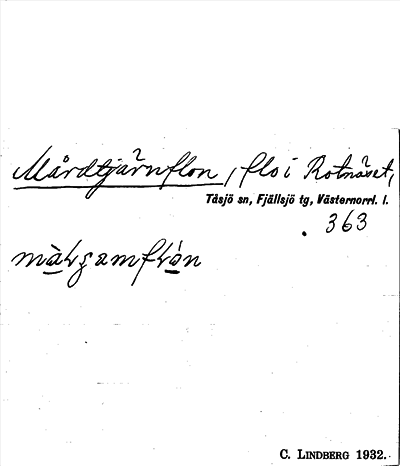 Mårdtjärnflon, flo i Rotnäset,
Tåsjö sn, Fjällsjö tg, Västernorrl. l.
363
C. LINDBERG 1932.